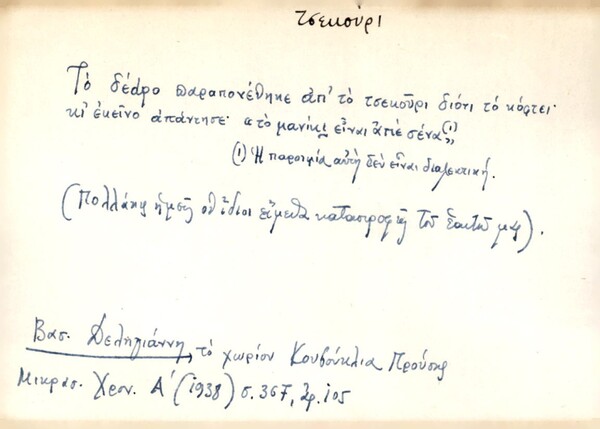 τσεκούρι
Τὸ δέdρο παραπονέθηκε ἀπ' τὸ τσεκοῦρι διότι τό κόφτει·
κι' ἐκεῖνο ἀπάντησε· «τὸ μανίκι εἶναι ἀπὲ σένα(1)»
(1) Ἡ παροιμία αὐτὴ δὲν εἶναι διαλεκτική.
(Πολλάκις ἡμεῖς οἱ ἴδιοι εἴμεθα καταστροφεῖς τοῦ ἑαυτοῦ μας).
Βασ. Δεληγιάννη τὸ χωρίον Κουβούκλια Προύσης
Μικρασ. Χρον. Α' (1938) σ. 367, ἀρ. 105